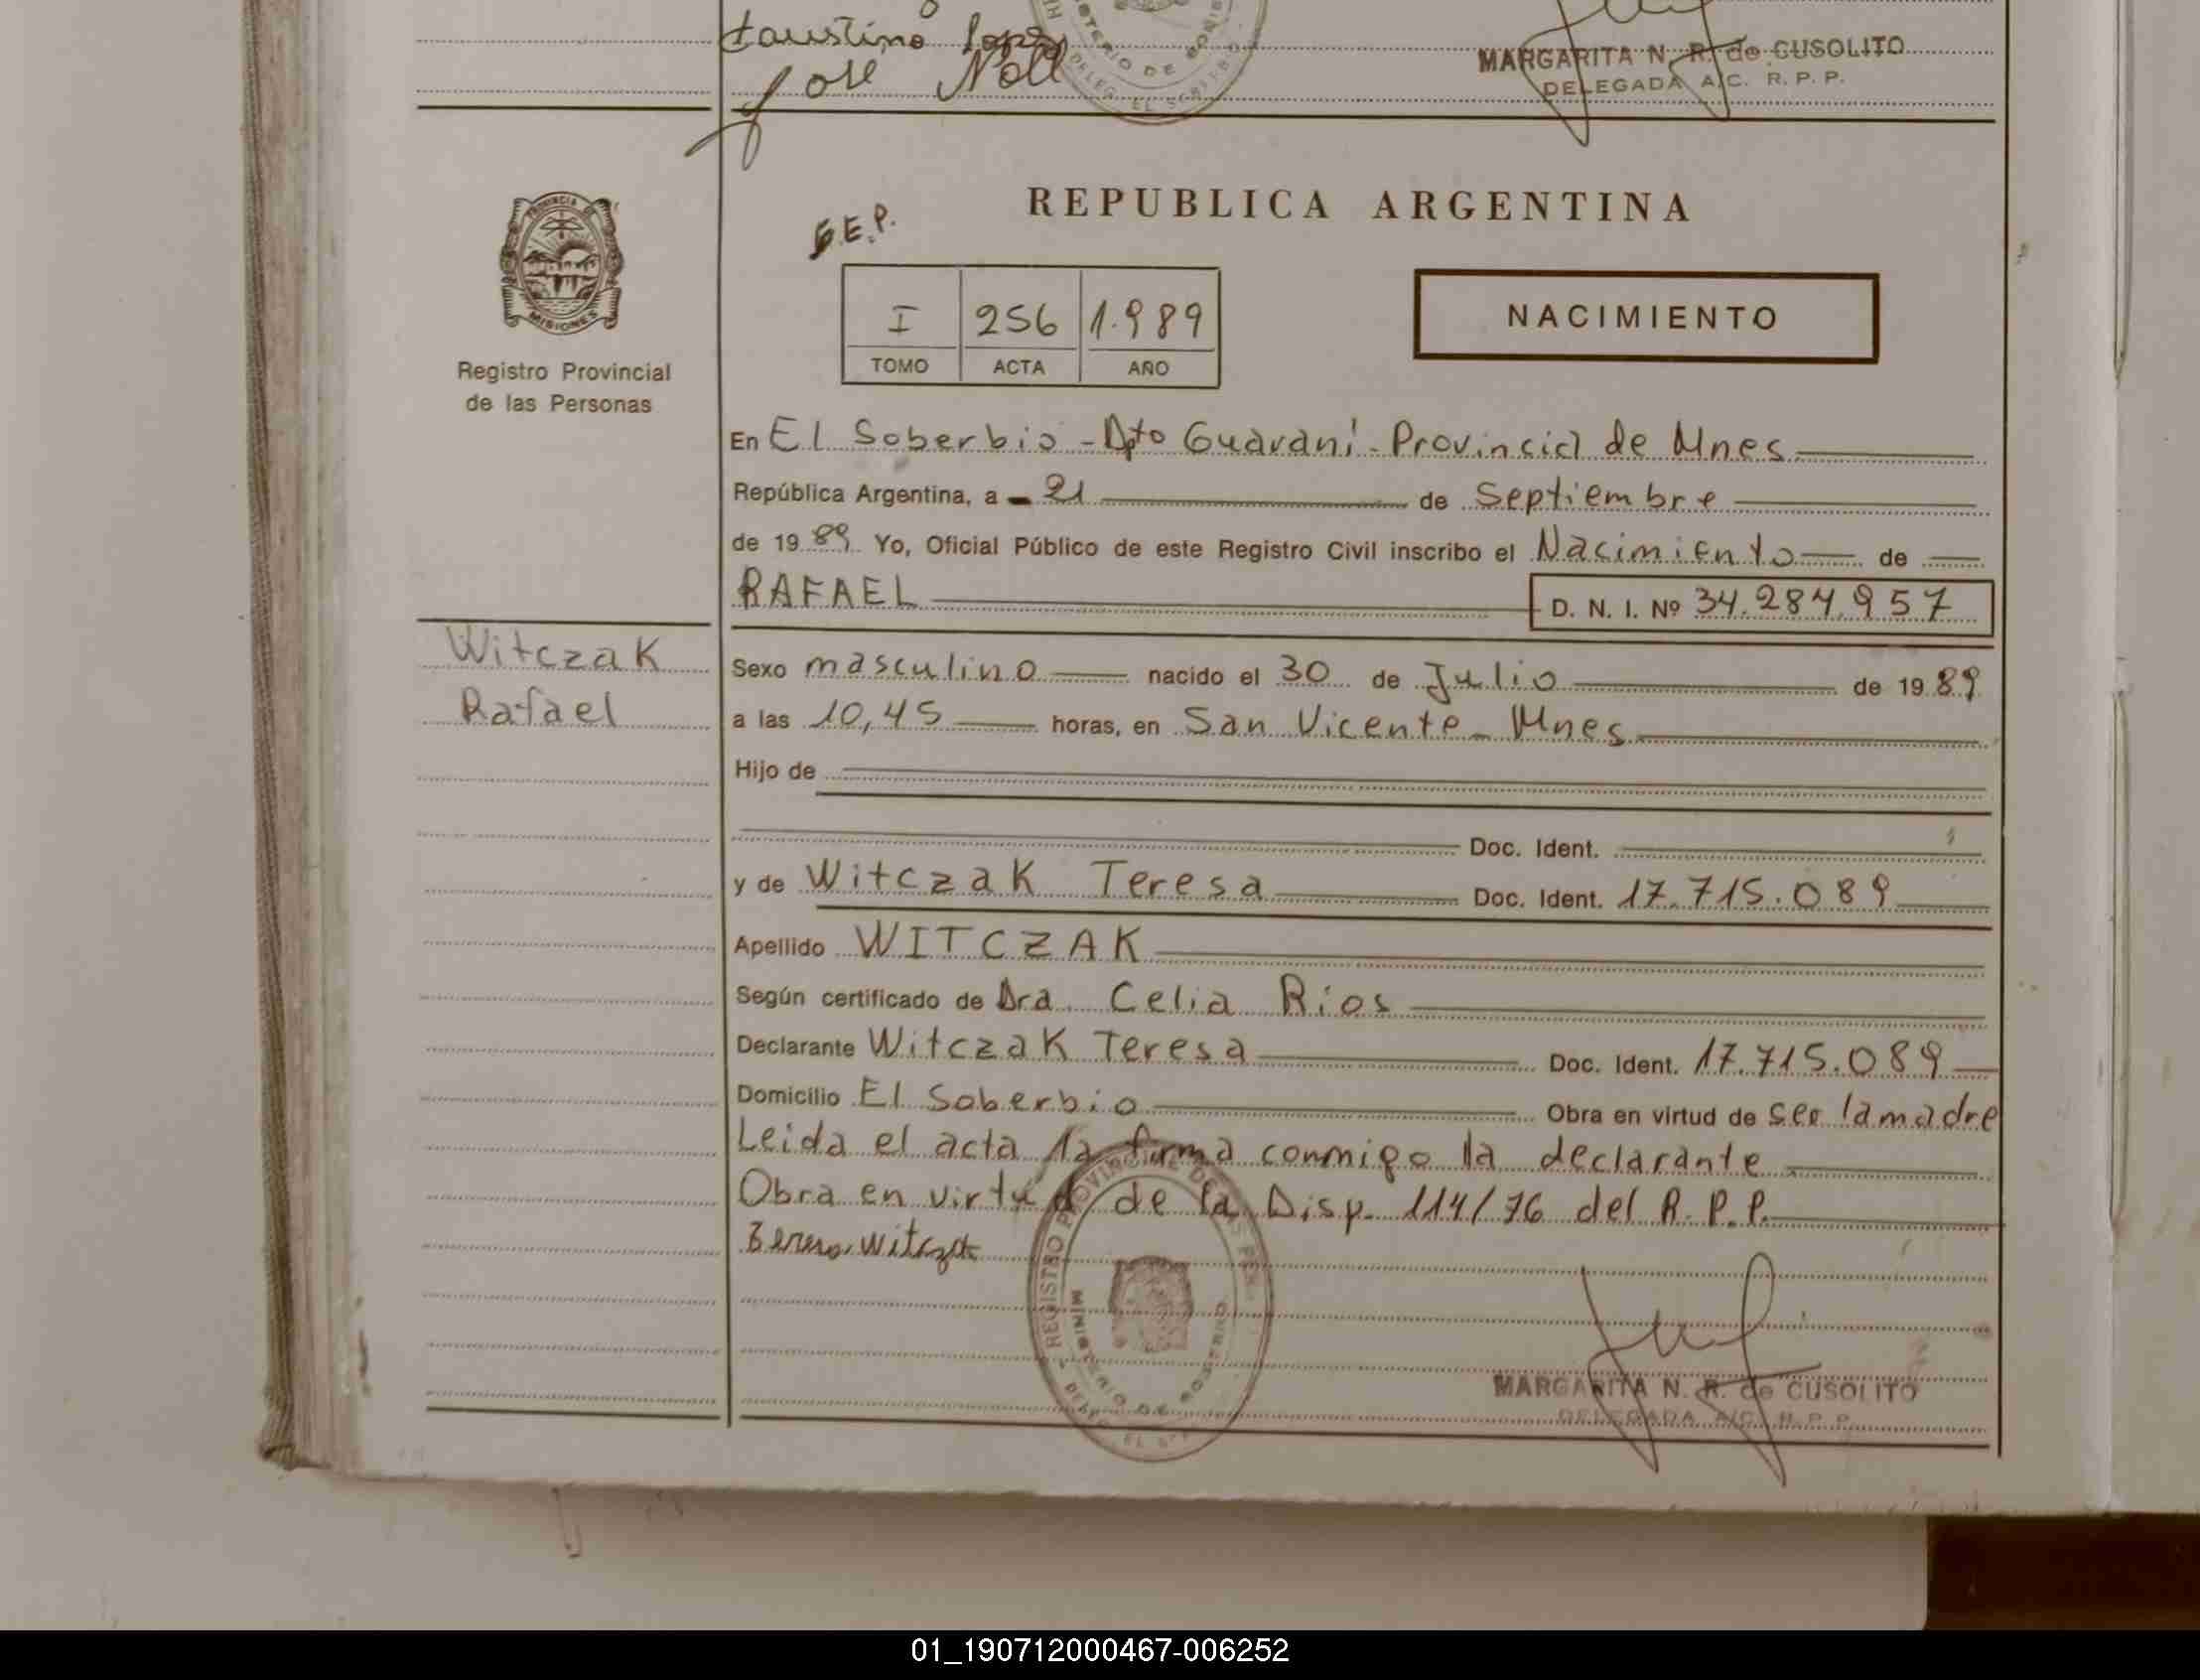 Faustino Lopez
MARGARITA N. R. de CUSOLITO
José Noll
DELEGADA A/C. R. P. P.
MINISTERIO DE
DELEG. EL SOBERBIO
PROVINCIA DE
MISIONES
Registro Provincial
de las Personas
REPUBLICA ARGENTINA
E.E.P.
I 256 1.989
TOMO ACTA AÑO
NACIMIENTO
En El Soberbio - Dpto Guaraní - Provincia de Mnes
República Argentina, a 21 de Septiembre
de 19 89 Yo, Oficial Público de este Registro Civil inscribo el Nacimiento de
RAFAEL
D. N. I. Nº 34.284.957
Witczak
Rafael
Sexo masculino nacido el 30 de Julio de 19 89
a las 10,45 horas, en San Vicente - Mnes
Hijo de
Doc. Ident.
y de Witczak Teresa Doc. Ident. 17.715.089
Apellido WITCZAK
Según certificado de Dra. Celia Rios
Declarante Witczak Teresa Doc. Ident. 17.715.089
Domicilio El Soberbio Obra en virtud de ser la madre
Leida el acta la firma conmigo la declarante
Obra en virtud de la Disp. 114/76 del R. P. P.
Teresa Witczak
REGISTRO PROVINCIAL DE LAS PER
MINISTERIO DE GOBIERNO
MARGARITA N. R. de CUSOLITO
DELEGADA A/C. R. P. P.
01_190712000467-006252